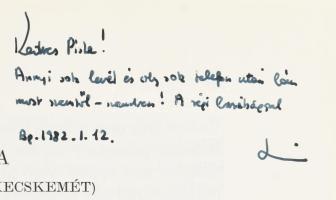 Kedves Pista!
Annyi sok levél és oly sok telefon után lám
most szemtől - szemben! A régi barátsággal
Bp. 1982. I. 12.
A
KECSKEMÉT)